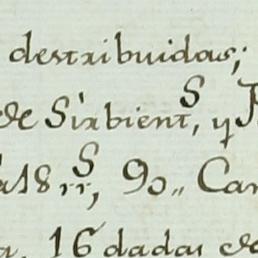 destribuidas;
de Sirbient,S y
18rr,S 90,, Can
16 dadas de